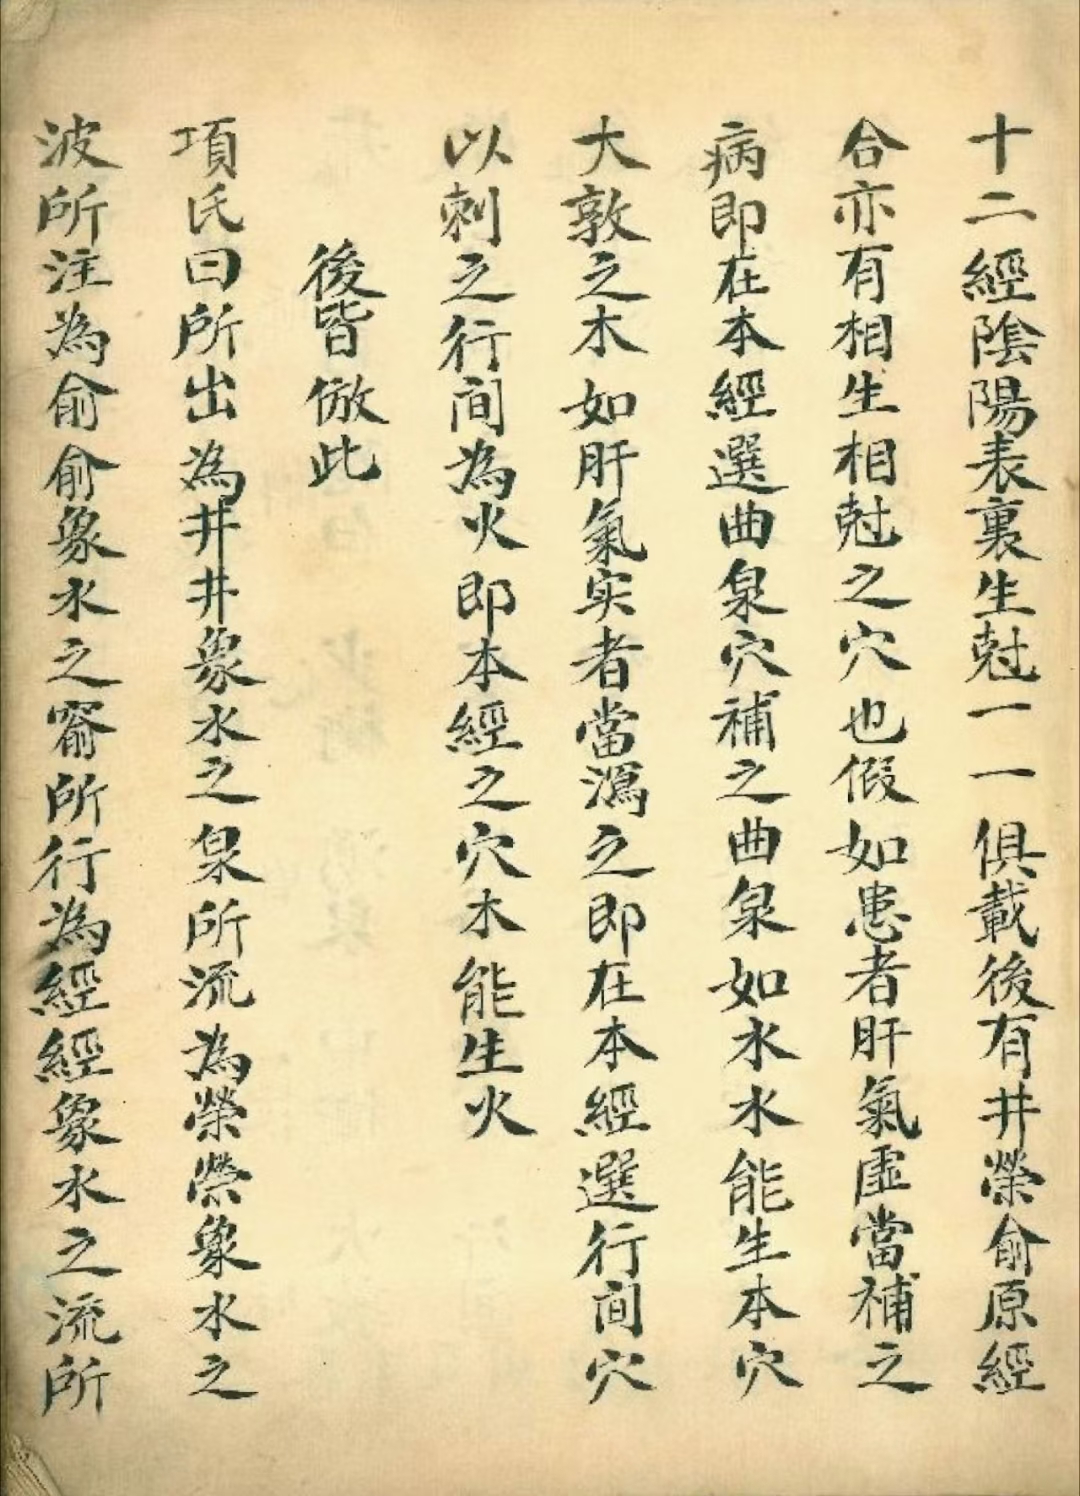 十二經陰陽表裏生尅一一俱載後有井滎俞原經
合亦有相生相尅之穴也假如患者肝氣虛當補之
病即在本經選曲泉穴補之曲泉如水水能生本穴
大敦之木如肝氣实者當瀉之即在本經選行间穴
以刺之行间為火即本經之穴木能生火
後皆倣此
項氏曰所出為井井象水之泉所流為榮榮象水之
波所注為俞俞象水之窬所行為經經象水之流所